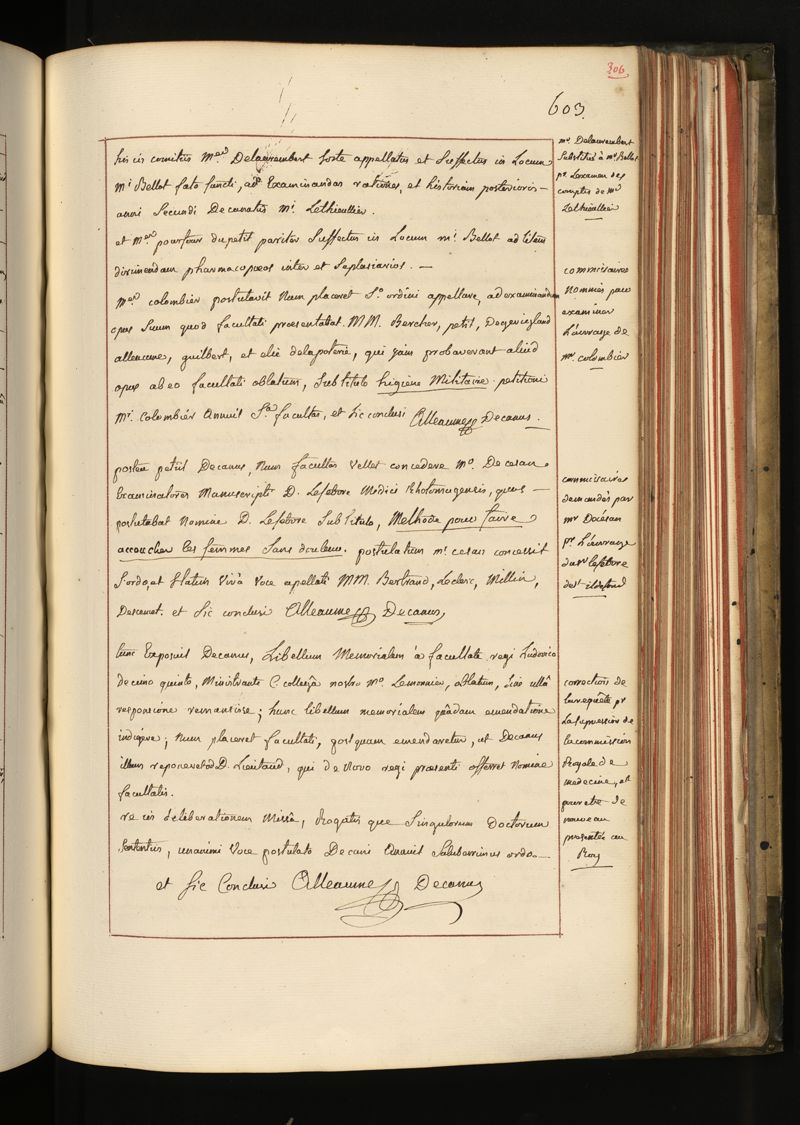 306
603
his in comitiis Mer. Delaurembert forte appellatus et Suffectus in Locum
mi Bellot fato functi, ad Examinandas rationes, et historiam posterioris
anni Secundi Decanatus Mi. Lethieullier.
et Mer pourfour dupetit pariter Suffectus in Locum mi. Bellot ad litem
dirimendam pharmacopoeos inter et Seplasiarios. —
Mer. colombier postulavit Num placeret So. ordini appellare, ad examinandum
opus Suum quod facultati praesentabat. MM. Bercher, petit, Desgevigland
alleaume, guilbert, et elie delapoterie, qui jam probaverant aliud
opus ab eo facultati oblatum, Sub titulo higiene Militaire. petitioni
Mi. Colombier Annuit Sa. facultas, et sic conclusi Alleaume Decanus.
postea petiit Decanus, Num facultas Vellet concedere Mo. De cesan
Examinatores Manuscripti D. Lefebvre Medici Rhotomagensis, quos —
postulabat Nomine D. Lefebvre Sub titulo, Methode pour faire
accoucher les femmes Sans douleur. postulatum mi. cesan concessit
S. ordo, et Statim Vivâ Voce apellati MM. Bertrand, Leclerc, Millin,
Descemet. et Sic conclusi Alleaume Decanus,
tunc Exposuit Decanus, Libellum Memorialem à facultate regi Ludovico
decimo quinto, Ministrante C. collegâ nostro Mo. Lemonnier, oblatum, Sine ullâ
responsione remansisse; hunc libellum memorialem quâdam emendatione
indigere; Num placeret facultati, postquam emendaretur, ut Decanus
illum reponeret D. Lieutaud, qui de Novo regi praesenti offerret Nomine
facultatis.
re in deliberationem Missâ, Rogatis que Singulorum Doctorum
Sententiis, unanimi Voce postulato Decani Annuit Saluberrimus ordo.
et Sic Conclusi Alleaume Decanus
mr. Delaurembert
Substitué à mr. Bellot
pr. l'examen des
comptes de Mr
Lethieullier
commissaires
Nommés pour
examiner
L'ouvrage de
mr. colombier
commissaires
demandés par
mr Decesan
pr. L'ouvrage
du Sr lefebvre
de st ildefond
correction de
la requête pr
La Supression de
la commission
Royale de
medecine, et
pour etre de
nouveau
presentée au
Roy